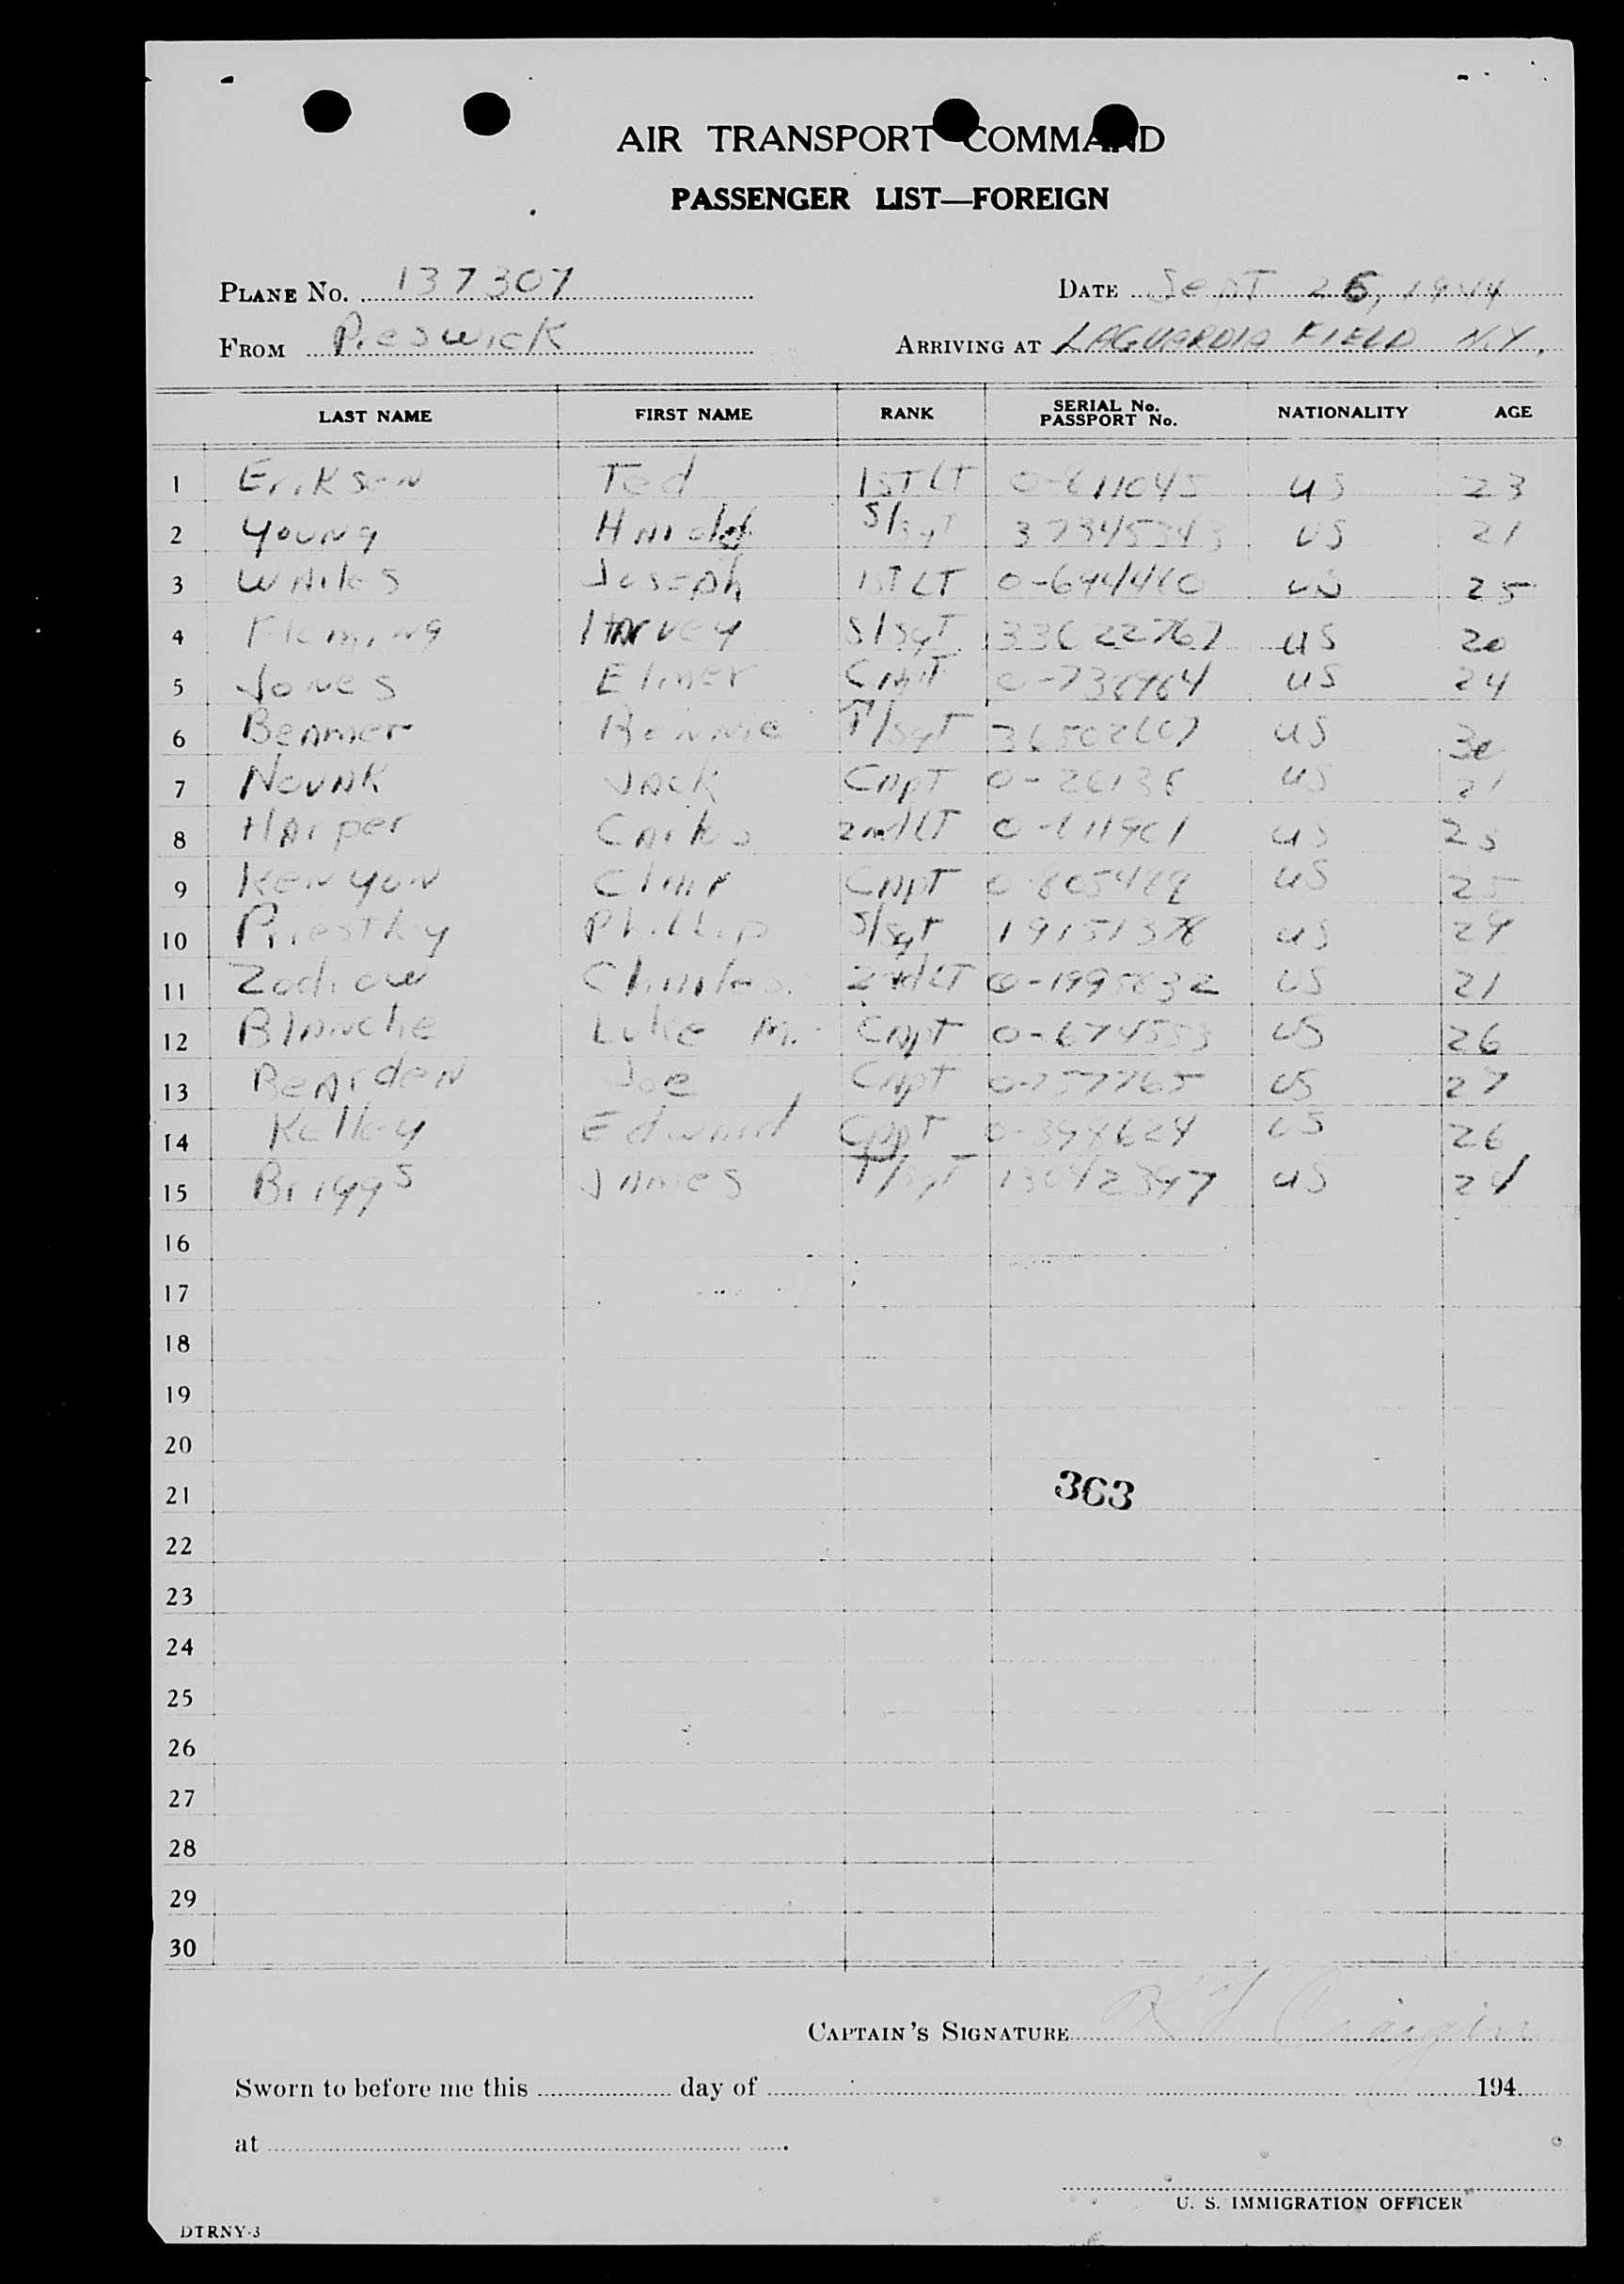 AIR TRANSPORT COMMAND
PASSENGER LIST—FOREIGN
PLANE No. 137307 DATE Sept 26, 1944
FROM Preswick ARRIVING AT LAGUARDIA FIELD N.Y.
LAST NAME FIRST NAME RANK SERIAL No. PASSPORT No. NATIONALITY AGE
1 Erikson Ted 1ST LT US 23
2 Young Harold S/sgt US 21
3 Joseph 1ST LT US 25
4 Fleming Harvey S/sgT US 20
5 Jones Elmer CApT US 24
6 Beamer Bennie T/sgT US 30
7 Novak Jack CApT 0-26138 US 21
8 Harper Carlos 2nd LT US 25
9 Kenyon Clair CApT US 25
10 Priestley Phillip S/sgt US 24
11 Zodrow Charles 2nd LT US 21
12 Blanche Luke M. CApt 0-674553 US 26
13 Bearden Joe CApt 0-757765 US 27
14 Kelley Edward CApt US 26
15 Briggs James T/sgT US 24
16
17
18
19
20
21 363
22
23
24
25
26
27
28
29
30
CAPTAIN'S SIGNATURE
Sworn to before me this day of 194
at
U. S. IMMIGRATION OFFICER
DTRNY-3